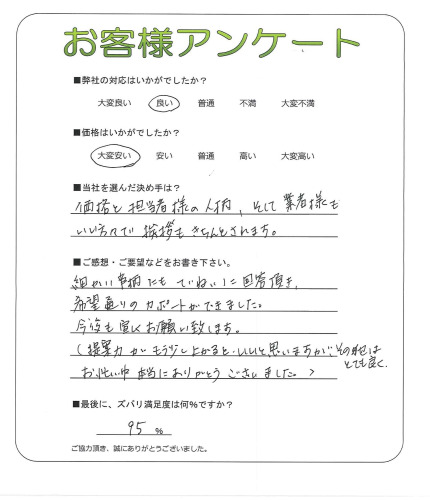 お客様アンケート
■弊社の対応はいかがでしたか？
大変良い 良い 普通 不満 大変不満
■価格はいかがでしたか？
大変安い 安い 普通 高い 大変高い
■当社を選んだ決め手は？
価格と担当者様の人柄、そして業者様も
いい方々で挨拶もきちんとされます。
■ご感想・ご要望などをお書き下さい。
細かい事柄にもていねいに回答頂き、
希望通りのカポートができました。
今後も宜しくお願い致します。
（提案力がもう少し上がるといいと思いますが、その他はとても良く、
お忙い中本当にありがとうございました。）
■最後に、ズバリ満足度は何％ですか？
95 %
ご協力頂き、誠にありがとうございました。